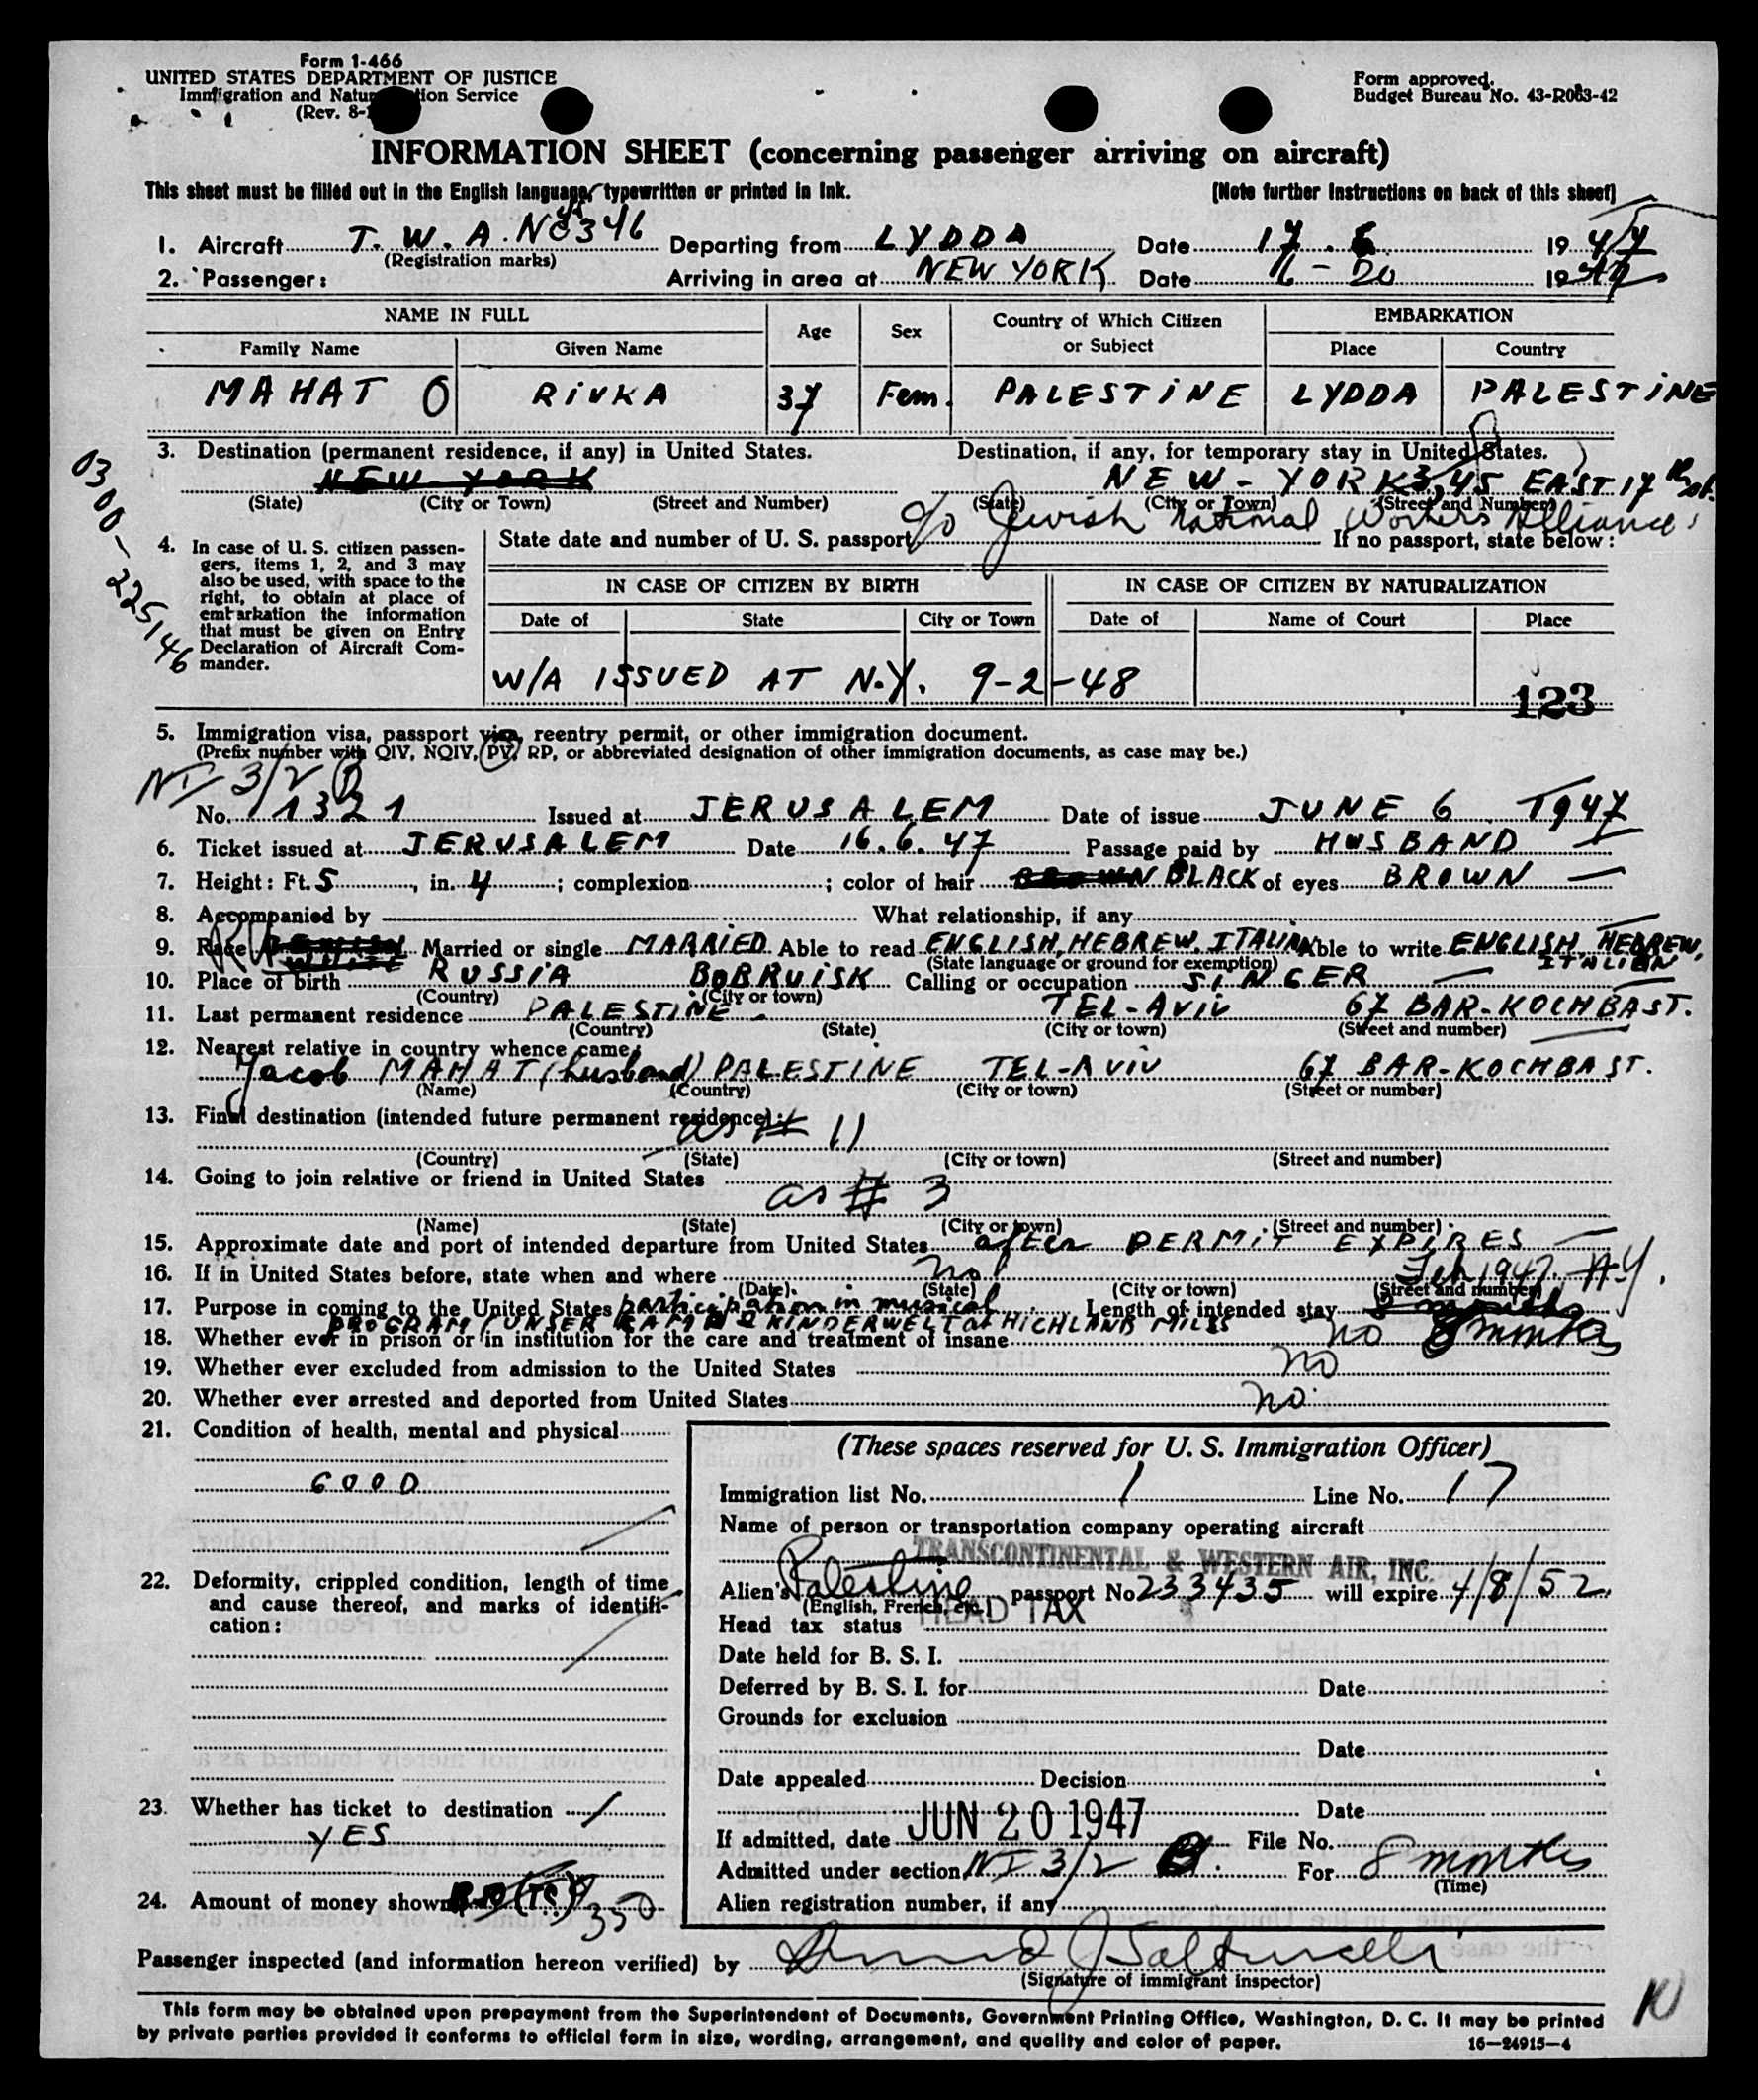 Form 1-466
UNITED STATES DEPARTMENT OF JUSTICE
Immigration and Naturalization Service
(Rev. 8-
Form approved.
Budget Bureau No. 43-R063-42
INFORMATION SHEET (concerning passenger arriving on aircraft)
This sheet must be filled out in the English language, typewritten or printed in ink. (Note further instructions on back of this sheet)
1. Aircraft T. W. A. No 346 Departing from LYDDA Date 17. 6 1947
(Registration marks)
2. Passenger: Arriving in area at NEW YORK Date 6-20 1947
NAME IN FULL Age Sex Country of Which Citizen or Subject EMBARKATION
Family Name Given Name Place Country
MAHAT O RIVKA 37 Fem. PALESTINE LYDDA PALESTINE
3. Destination (permanent residence, if any) in United States. Destination, if any, for temporary stay in United States.
NEW YORK NEW-YORK 3, 45 EAST 17
(State) (City or Town) (Street and Number) (State) (City or Town) (Street and Number)
c/o Jewish National Workers Alliance
0300-225146
4. In case of U. S. citizen passengers, items 1, 2, and 3 may also be used, with space to the right, to obtain at place of embarkation the information that must be given on Entry Declaration of Aircraft Commander.
State date and number of U. S. passport If no passport, state below:
IN CASE OF CITIZEN BY BIRTH IN CASE OF CITIZEN BY NATURALIZATION
Date of State City or Town Date of Name of Court Place
W/A ISSUED AT N.Y. 9-2-48
123
5. Immigration visa, passport visa, reentry permit, or other immigration document.
(Prefix number with QIV, NQIV, PV, RP, or abbreviated designation of other immigration documents, as case may be.)
NI 3/2 B
No. 1321 Issued at JERUSALEM Date of issue JUNE 6 1947
6. Ticket issued at JERUSALEM Date 16.6.47 Passage paid by HUSBAND
7. Height: Ft. 5, in. 4; complexion; color of hair BROWN BLACK of eyes BROWN
8. Accompanied by What relationship, if any
9. Race Married or single MARRIED Able to read ENGLISH, HEBREW, ITALIAN Able to write ENGLISH, HEBREW, ITALIAN
(State language or ground for exemption)
10. Place of birth RUSSIA BOBRUISK Calling or occupation SINGER
(Country) (City or town)
11. Last permanent residence PALESTINE TEL-AVIV 67 BAR-KOCHBA ST.
(Country) (State) (City or town) (Street and number)
12. Nearest relative in country whence came:
Jacob MAHAT (husband) PALESTINE TEL-AVIV 67 BAR-KOCHBA ST.
(Name) (Country) (City or town) (Street or number)
13. Final destination (intended future permanent residence):
as # 11
(Country) (State) (City or town) (Street and number)
14. Going to join relative or friend in United States
as # 3
(Name) (State) (City or town) (Street and number)
15. Approximate date and port of intended departure from United States after PERMIT EXPIRES
16. If in United States before, state when and where no Feb 1947
(Date) (State) (City or town) (Street and number)
17. Purpose in coming to the United States participation in musical Length of intended stay
PROGRAM (UNSER KAMP & KINDERWELT at HIGHLAND MILLS 8 months
18. Whether ever in prison or in institution for the care and treatment of insane no
19. Whether ever excluded from admission to the United States no
20. Whether ever arrested and deported from United States no.
21. Condition of health, mental and physical
GOOD
22. Deformity, crippled condition, length of time and cause thereof, and marks of identification:
23. Whether has ticket to destination
YES
24. Amount of money shown 350
(These spaces reserved for U. S. Immigration Officer)
Immigration list No. 1 Line No. 17
Name of person or transportation company operating aircraft
TRANSCONTINENTAL & WESTERN AIR, INC.
Alien's Palestine passport No. 233435 will expire 4/8/52
(English, French, etc.)
Head tax status HEAD TAX
Date held for B. S. I.
Deferred by B. S. I. for Date
Grounds for exclusion
Date
Date appealed Decision
Date
If admitted, date JUN 20 1947 File No.
Admitted under section NI 3/2 B. For 8 months
(Time)
Alien registration number, if any
Passenger inspected (and information hereon verified) by
(Signature of immigrant inspector)
This form may be obtained upon prepayment from the Superintendent of Documents, Government Printing Office, Washington, D. C. It may be printed
by private parties provided it conforms to official form in size, wording, arrangement, and quality and color of paper. 16—24915-4